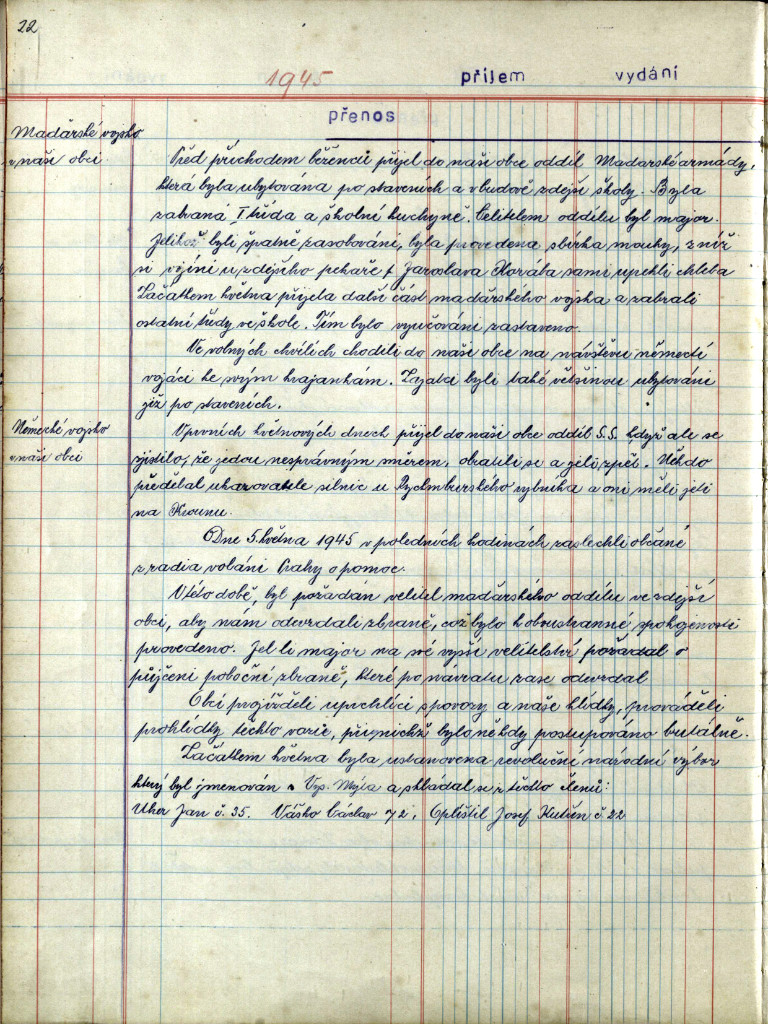 22
1945 příjem vydání
přenos
Maďarské vojsko
v naší obci
Před příchodem běženců přijel do naší obce oddíl Maďarské armády,
která byla ubytována po staveních a v budově zdejší školy. Byla
zabraná I třída a školní kuchyně. Velitelem oddílu byl major.
Jelikož byli špatně zásobováni, byla provedena sbírka mouky, z níž
si vojíni u zdejšího pekaře Jaroslava Horába sami upekli chleba
Začátkem května přijela další část maďarského vojska a zabrali
ostatní třídy ve škole. Tím bylo vyučování zastaveno.
Ve volných chvílích chodili do naší obce na návštěvu němečtí
vojáci ke svým krajankám. Zajatci byli také většinou ubytováni
již po staveních.
Německé vojsko
v naší obci
V prvních květnových dnech přijel do naší obce oddíl S.S. když ale se
zjistilo, že jedou nesprávným směrem, obrátili se a jeli zpět. Někdo
předělal ukazovatele silnic u Rychmburského rybníka a oni měli jeti
na Krounu.
Dne 5. května 1945 v poledních hodinách zaslechli občané
z radia volání Prahy o pomoc.
V této době, byl požádán velitel maďarského oddílu ve zdejší
obci, aby nám odevzdali zbraně, což bylo k oboustranné spokojenosti
provedeno. Jel li major na své vyšší velitelství požádal o
půjčení poboční zbraně, které po návratu zase odevzdal
Obcí projížděli uprchlíci s povozy a naše hlídky, prováděli
prohlídky těchto vozů, při nichž bylo někdy postupováno brutálně.
Začátkem května byla ustanovena revoluční národní výbor
který byl jmenován Vys. Mýta a skládal se z těchto členů:
Uher Jan č. 35. Vaško Václav 72, Oplištil Josef Kutřín č 22